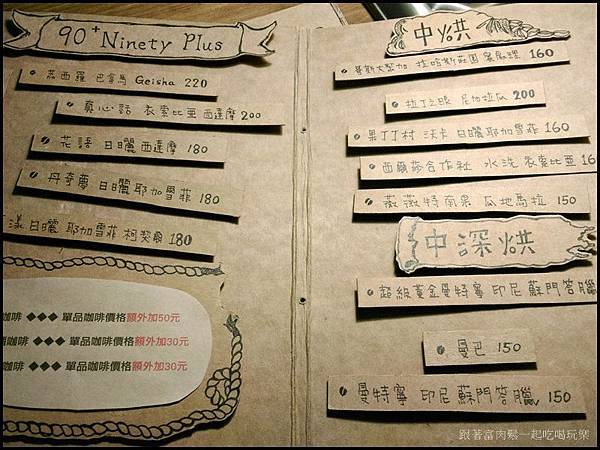 90⁺ Ninety Plus
燕西羅 巴拿馬 Geisha 220
真心話 衣索比亞 西達摩 200
花語 日曬 西達摩 180
丹奇夢 日曬 耶加雪菲 180
漾 日曬 耶加雪菲 柯契爾 180
咖啡 ◆◆◆ 單品咖啡價格額外加50元
咖啡 ◆◆◆ 單品咖啡價格額外加30元
咖啡 ◆◆◆ 單品咖啡價格額外加30元
中烘
哥斯大黎加 拉哈斯莊園 160
拉丁之眼 尼加拉瓜 200
果丁丁村 沃卡 日曬 耶加雪菲 160
西爾莎合作社 水洗 衣索比亞
薇薇特南果 瓜地馬拉 150
中深烘
超級黃金曼特寧 印尼 蘇門答臘
曼巴 150
曼特寧 印尼 蘇門答臘 150
跟著富肉鬆一起吃喝玩樂